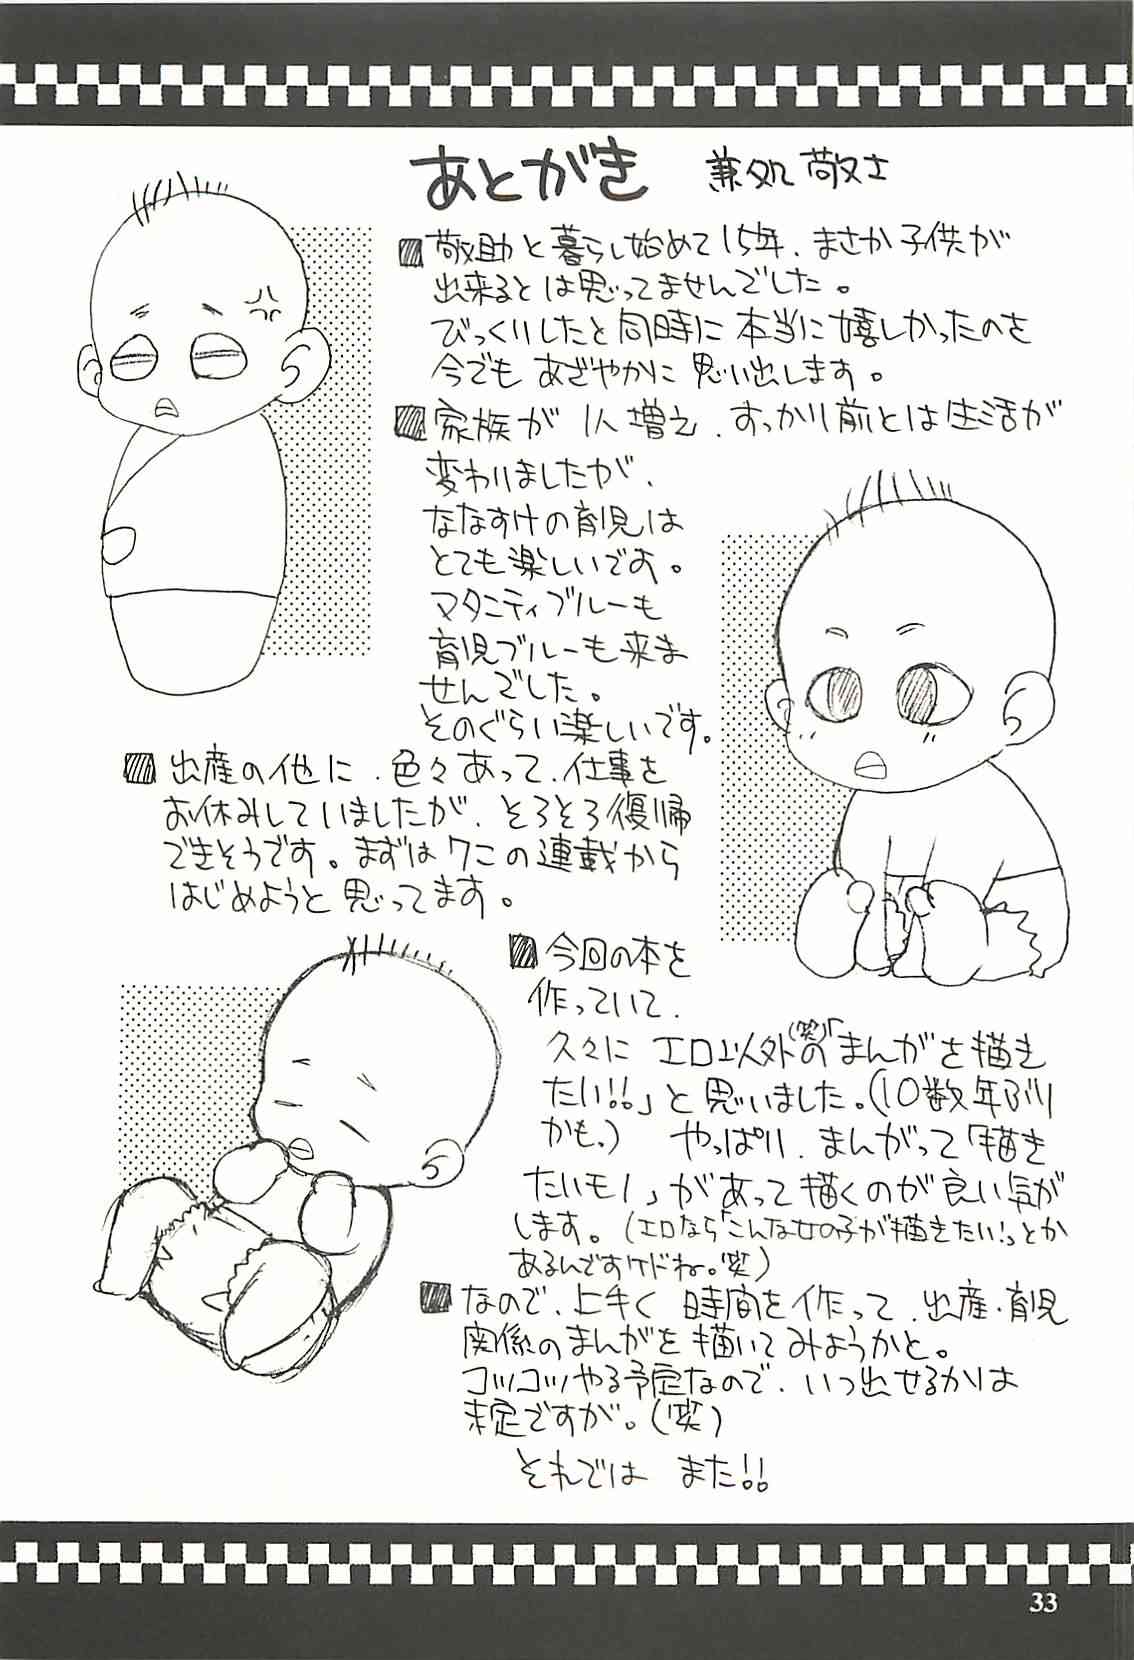 あとがき 兼処敬士
敬助と暮らし始めて15年、まさか子供が
出来るとは思ってませんでした。
びっくりしたと同時に本当に嬉しかったのを
今でもあざやかに思い出します。
家族が1人増え、すっかり前とは生活が
変わりましたが、
ななすけの育児は
とても楽しいです。
マタニティブルーも
育児ブルーも来ま
せんでした。
そのぐらい楽しいです。
出産の他に、色々あって、仕事を
お休みしていましたが、そろそろ復帰
できそうです。まずはワニの連載から
はじめようと思ってます。
今回の本を
作っていて、
久々にエロ以外(笑)の「まんがを描き
たい!!」と思いました。(10数年ぶり
かも。) やっぱり、まんがって「描き
たいモノ」があって描くのが良い気が
します。(エロなら「こんな女の子が描きたい!」とか
あるんですけどね。(笑)
なので、上手く時間を作って、出産・育児
関係のまんがを描いてみようかと。
コツコツやる予定なので、いつ出せるかは
未定ですが。(笑)
それでは また!!
33